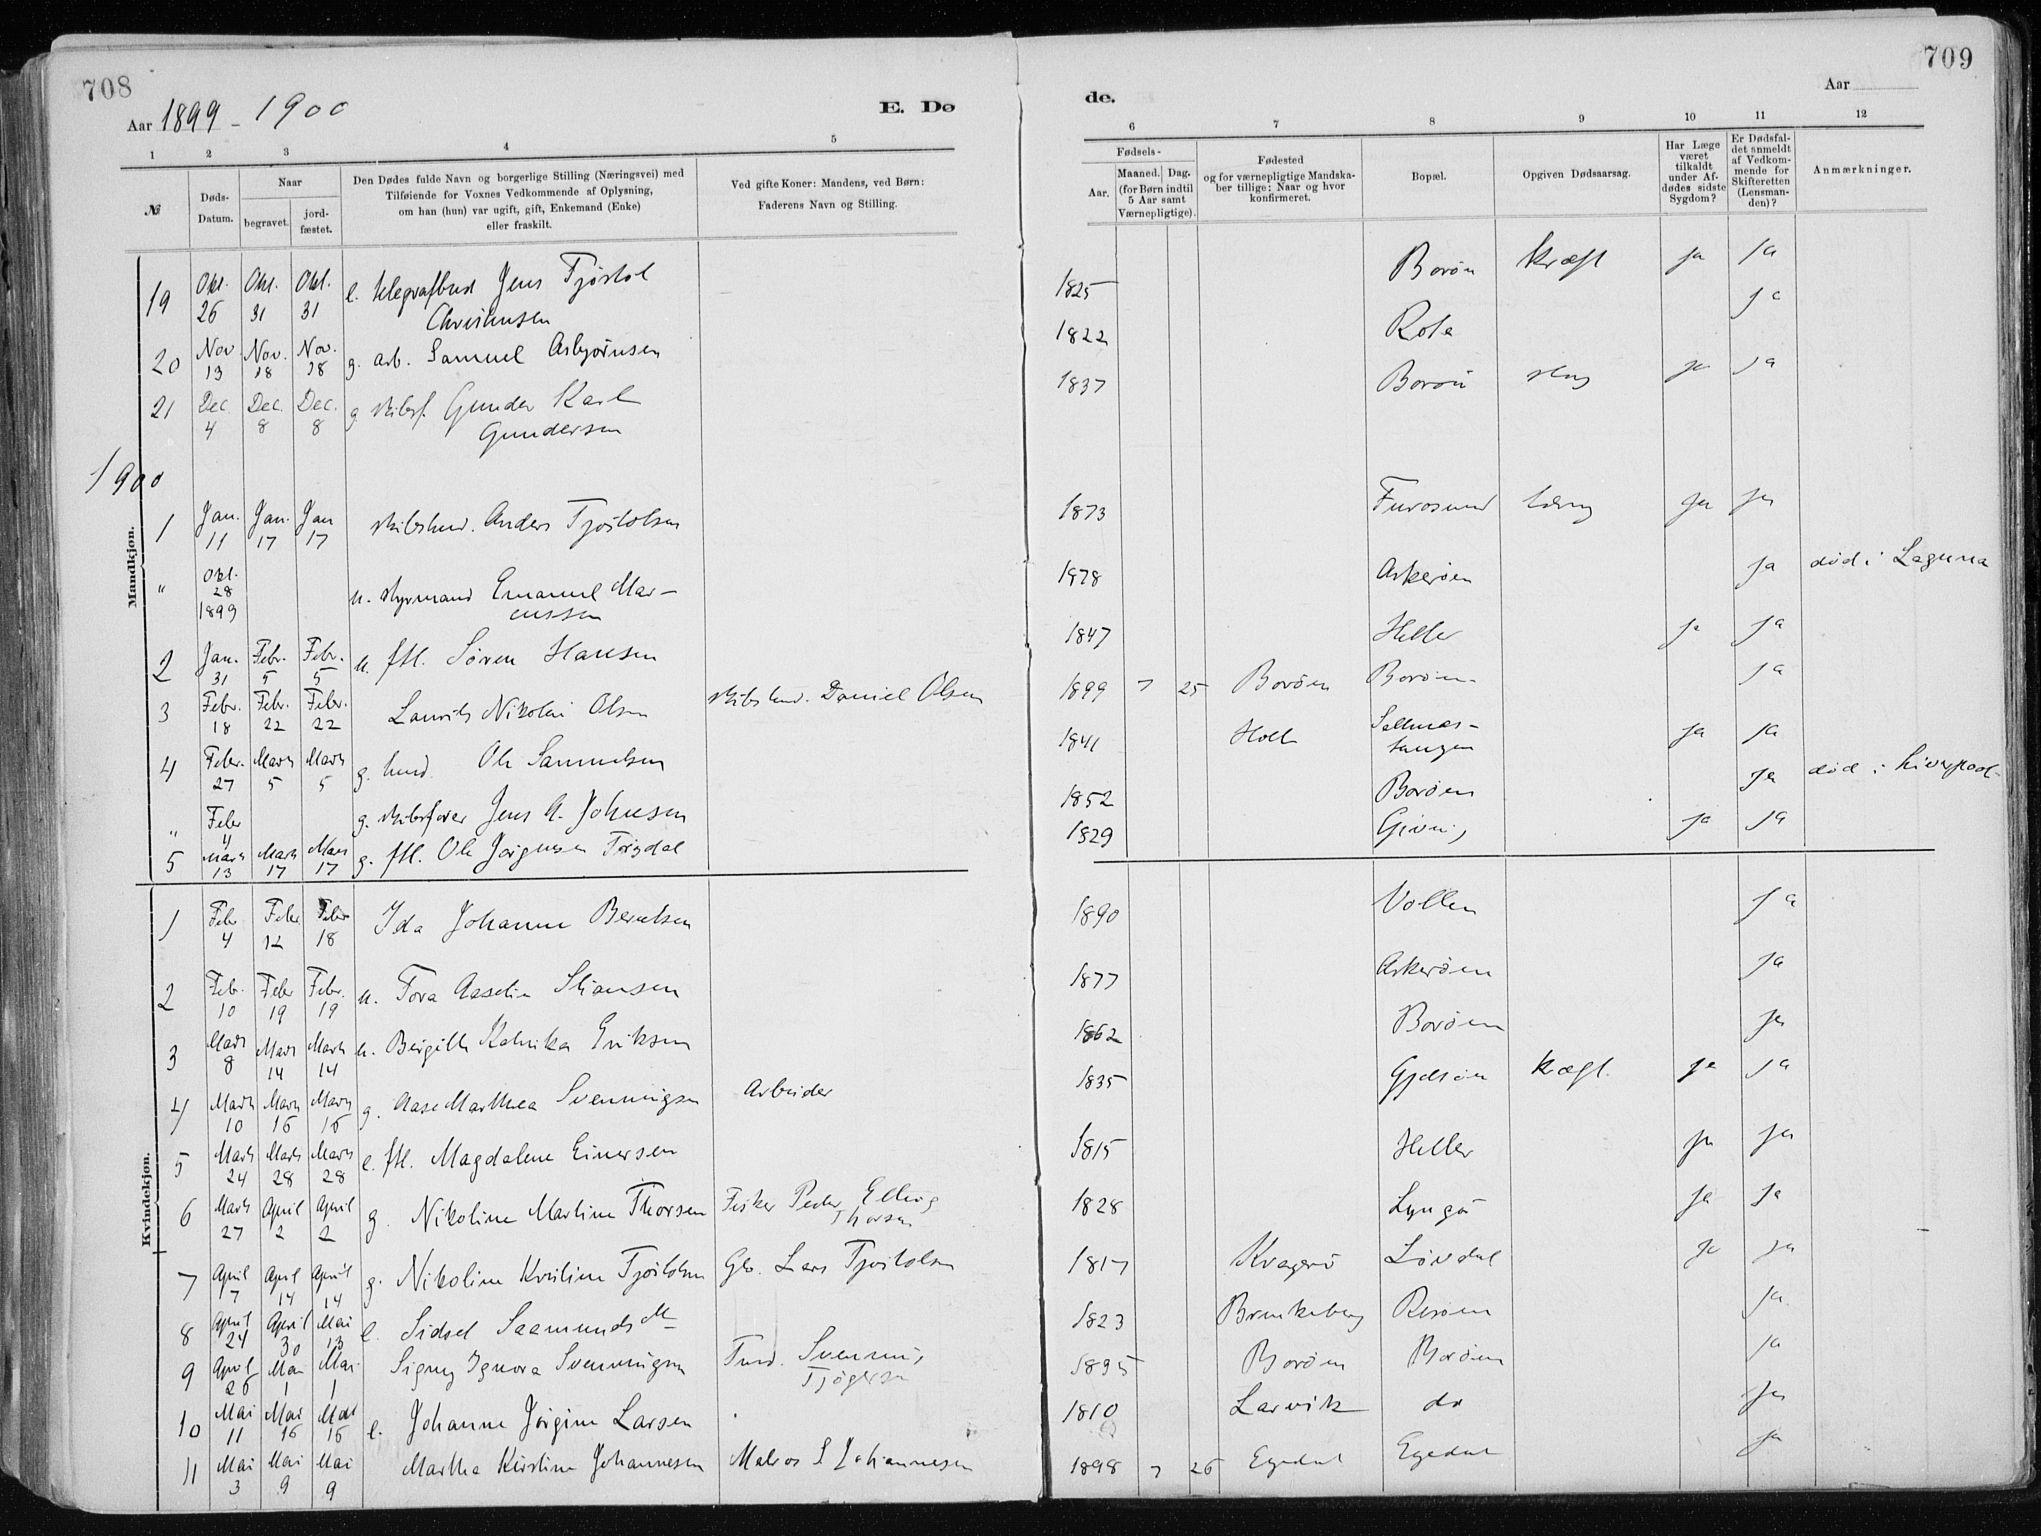 708
709
Aar 1899 - 1900
E. Dø
de.
Aar
1 2 3 4 5
6 7 8 9 10 11 12
№
Døds-
Datum.
Naar
begravet.
jord-
fæstet.
Den Dødes fulde Navn og borgerlige Stilling (Næringsvei) med
Tilføiende for Voxnes Vedkommende af Oplysning,
om han (hun) var ugift, gift, Enkemand (Enke)
eller fraskilt.
Ved gifte Koner: Mandens, ved Børn:
Faderens Navn og Stilling.
Fødsels-
Aar.
Maaned. Dag.
(for Børn indtil
5 Aar samt
Værnepligtige).
Fødested
og for værnepligtige Mandska-
ber tillige: Naar og hvor
konfirmeret.
Bopæl.
Opgiven Dødsaarsag.
Har Læge
været
tilkaldt
under Af-
dødes sidste
Sygdom?
Er Dødsfal-
det anmeldt
af Vedkom-
mende for
Skifteretten
(Lensman-
den)?
Anmærkninger.
Mandkjøn.
19 Okt. 26 Okt. 31 Okt. 31 e. telegrafbud Jens Tjøstol
Christensen 1825 Borøn kræft ja ja
20 Nov. 13 Nov. 18 Nov. 18 g. arb. Samuel Asbjørnsen 1822 Rota ja
21 Dec. 4 Dec. 8 Dec. 8 g skibsf. Gunder Karl
Gundersen 1837 Borøn slag ja ja
1900
1 Jan. 11 Jan. 17 Jan 17 skibstmd. Anders Tjøstolsen 1873 Furøsund tæring ja ja
" Okt. 28 1899 u. styrmand Emanuel Mar-
cussen 1878 Askerøen ja død i Laguna
2 Jan. 31 Febr. 5 Febr. 5 u. ftl. Søren Hansen 1847 Heller ja ja
3 Febr. 18 Febr. 22 Febr. 22 Laurits Nikolai Olsen skibstmd. Daniel Olsen 1899 7 25 Borøen Borøen ja
4 Febr. 27 Marts 5 Marts 5 g. tmd. Ole Samuelsen 1841 Holt Sellnæs-
tangen ja ja
" Febr 4 g. skibsfører Jens A. Johnsen 1852 Borøen ja død i Liverpool
5 Marts 13 Marts 17 Mars 17 g. ftl. Ole Jørgensen 1829 Giving ja ja
Kvindekjøn.
1 Febr 4 Febr 12 Febr 18 Ida Johanne Berntsen 1890 Vollen ja
2 Feb. 10 Febr 19 Febr. 19 u. Tora Aaselie Stiansen 1877 Askerøen ja
3 Marts 8 Marts 14 Marts 14 u. Bergitte Eriksen 1862 Borøen ja
4 Marts 10 Marts 16 Marts 16 g. Aase Marthea Svenningsen Arbeider 1835 Gjelsøen kræft. ja ja
5 Marts 24 Marts 28 Marts 28 e. ftl. Magdalene Einersen 1815 Heller ja ja
6 Marts 27 April 2 April 2 g Nikoline Martine Thorsen Fisker Peder Elling
Thorsen 1828 Lyngør ja ja
7 April 7 April 14 April 14 g. Nikoline Kristine Tjøstolsen Gbr. Lars Tjøstolsen 1817 Kragerø Løvdal ja ja
8 April 24 April 30 Mai 13 e. Sidsel Saamundsdt 1823 Brunkeberg Risøen ja
9 April 26 Mai 1 Mai 1 Signy Ignora Svenningsen Tmd. Svenning
Tjøgersen 1895 Borøen Borøen ja
10 Mai 11 Mai 16 Mai 16 e. Johanne Jørgine Larsen 1810 Larvik do ja
11 Mai 3 Mai 9 Mai 9 Martha Kirstine Johannesen Matros S Johannesen 1898 7 26 Egedal Egedal ja